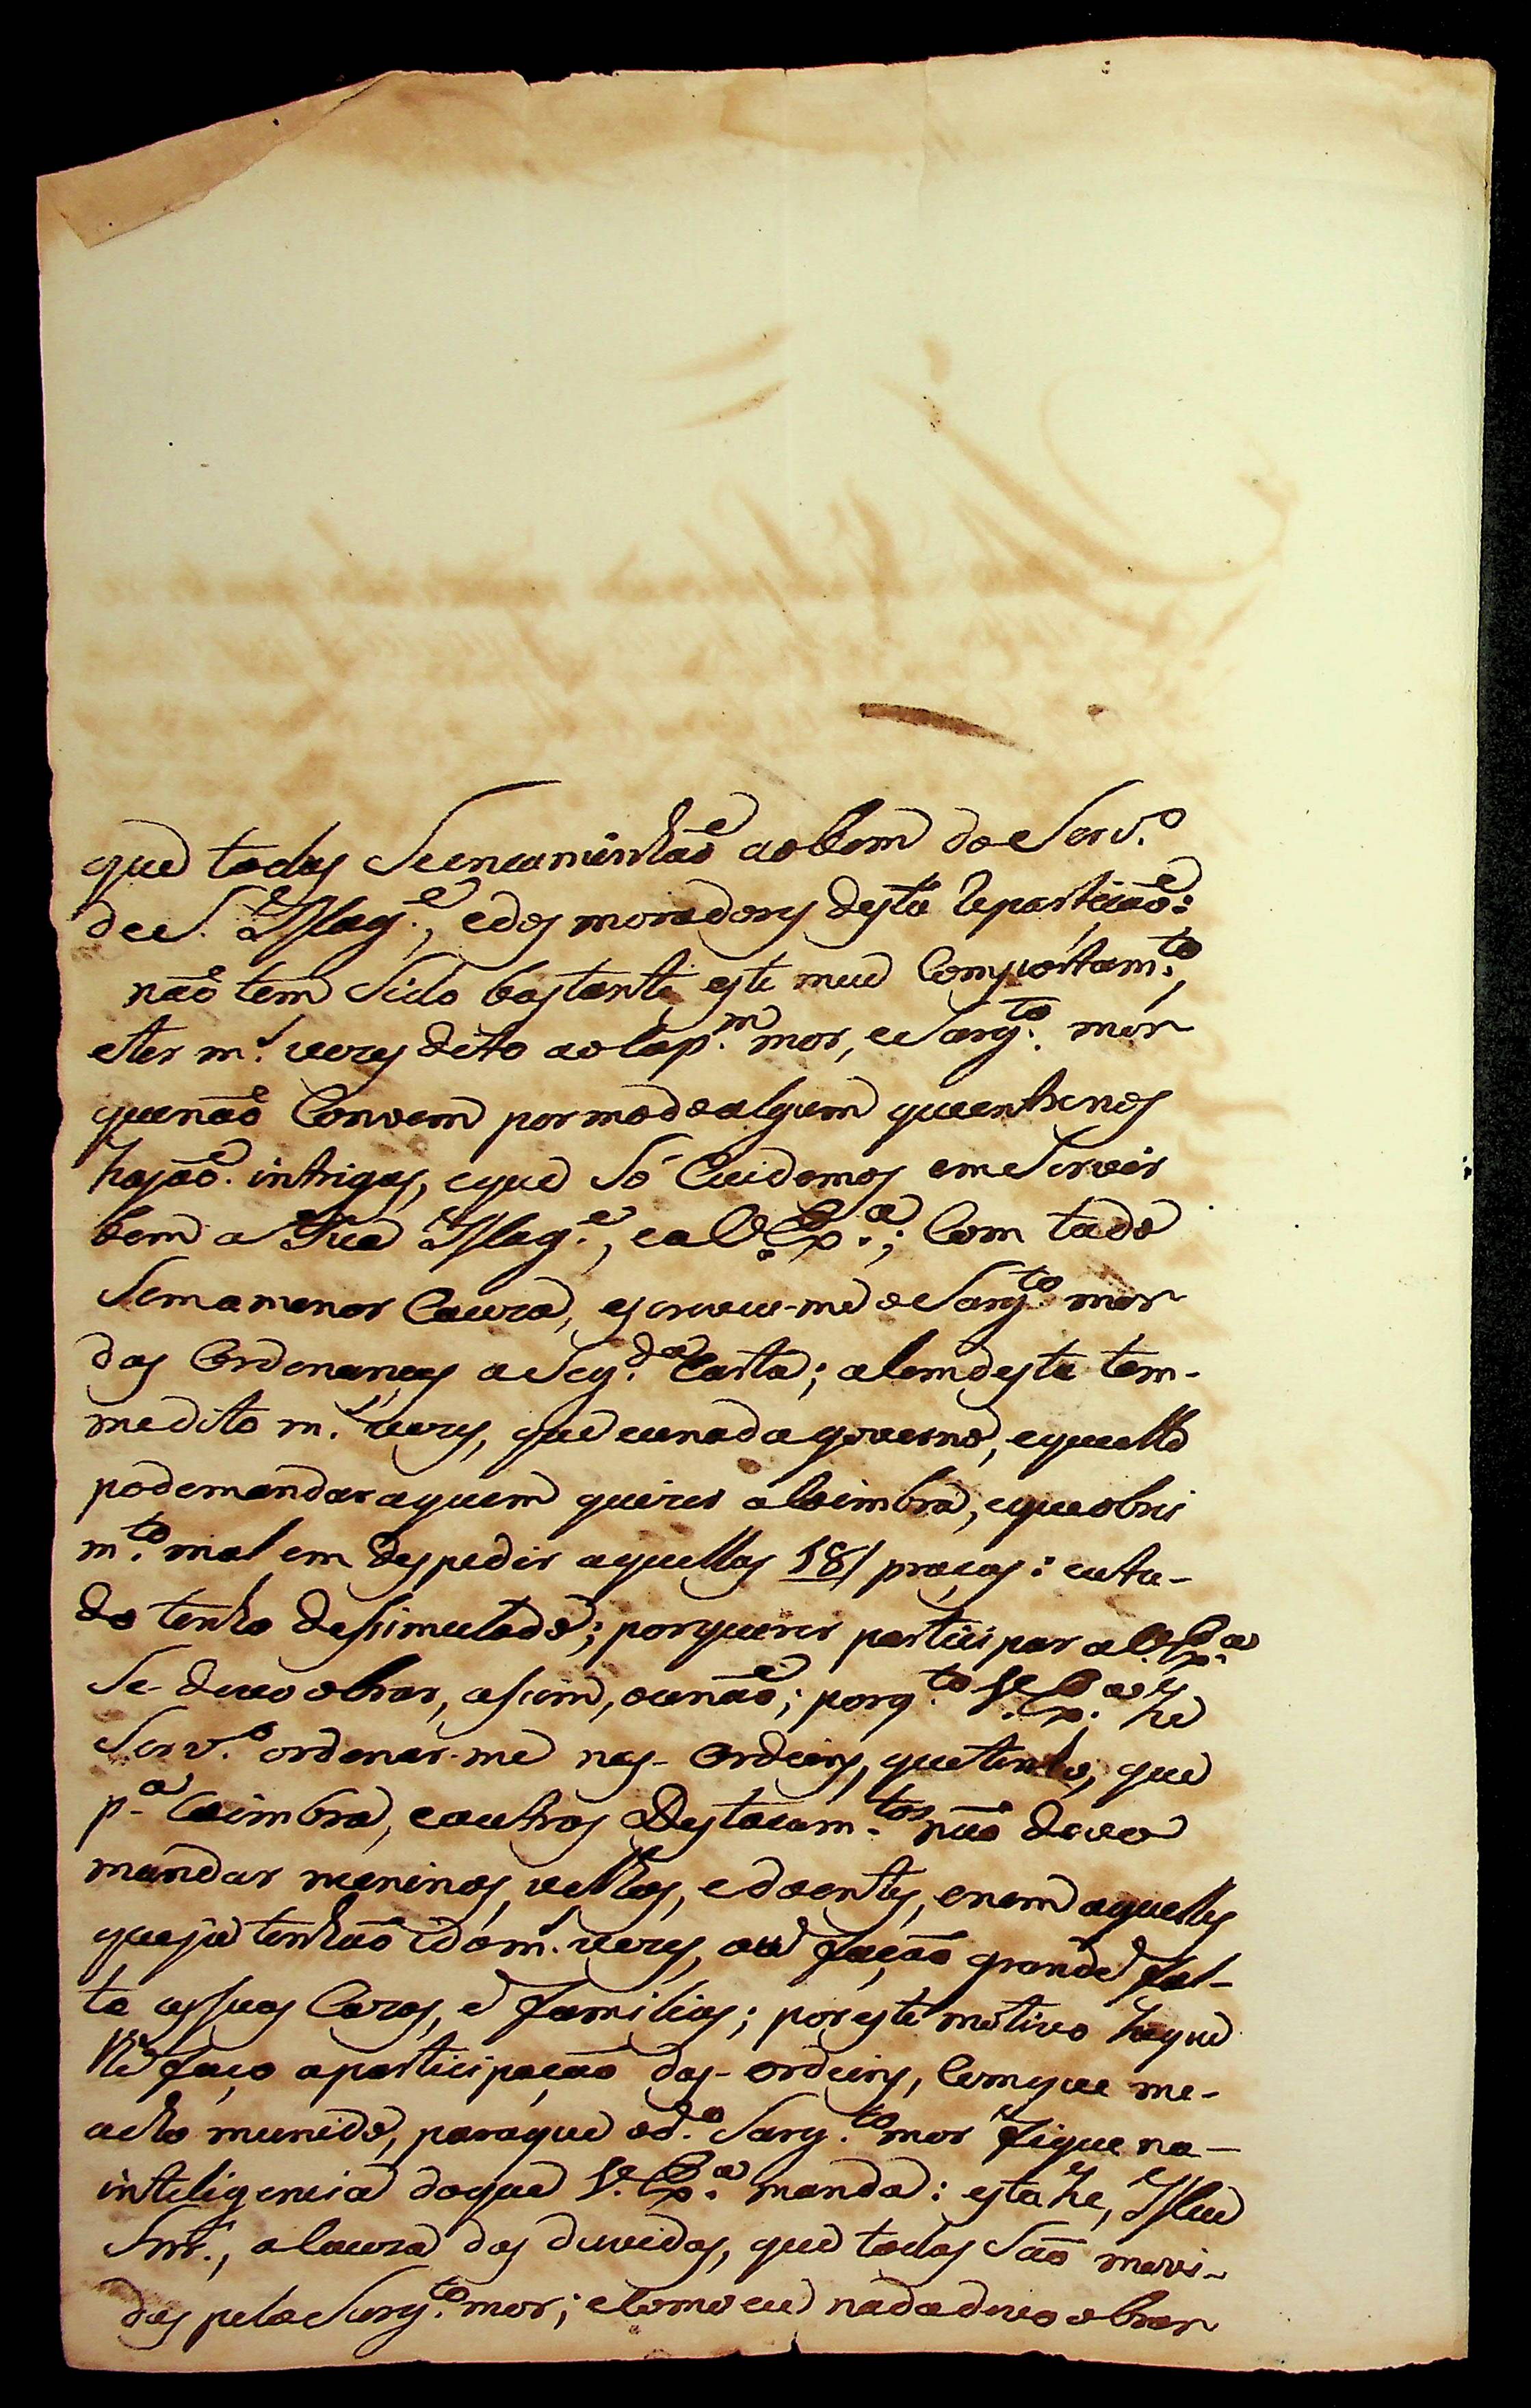 que todas Seencaminhaõ aobem do Serv.º
de S. Mag.e, edos moradores desta Repartiçaõ:
naõ tem Sido bastante este meu Comportam.to,
eter m.s vezes dito ao Cap.m mor, e Sarg.to mor
quenaõ Convem por modo algum queentrenos
hajaõ intrigas, eque Só Cuidemos em Servir
bem a Sua Mag.e, ea V. Ex.a; Com tudo
Sem amenor Cauza, escreveu-me o Sarg.to mor
das Ordenanças a Seg.da Carta; alem desta tem-
medito m.s vezes, que eu nada governo, equelle
pode mandar aquem quizer a Coimbra, equeobrei
m.to mal em despedir aquellas 18 praças: eatu-
do tenho desimulado; por querer participar a V. Ex.a
Se devo obrar, asim, ounaõ; porq.to V. Ex.a he
Serv.º ordenar-me nas Ordeins, quetenho, que
p.a Coimbra, eoutros Destacam.tos naõ devo
mandar meninos, velhos, edoentes, enem aquelles
queja tenhaõ ido m.s vezes, ou façaõ grande fal-
ta assuas Cazas, e familias; por este motivo heque
lhe faço aparticipaçaõ das ordeins, Comque me-
acho munido, paraque od.º Sarg.to mor fique na
inteligencia doque V. Ex.a manda: esta he, Meu
Snr., a Cauza das duvidas, que todas Saõ movi-
das pelo Sarg.to mor; eComo eu nada devo obrar